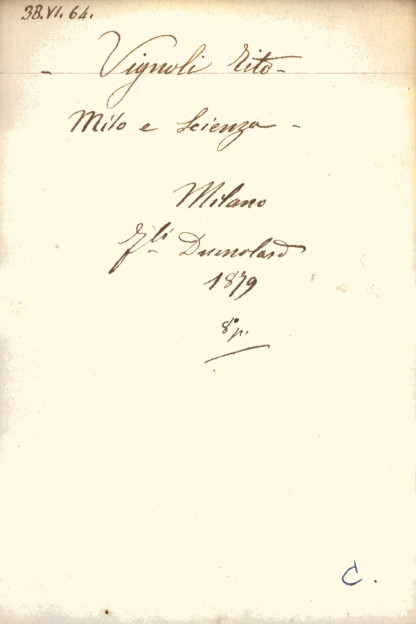 38.VI.64.
- Vignoli Tito -
Mito e Scienza -
Milano
Fli Dumolard
1879
8° p.
C.